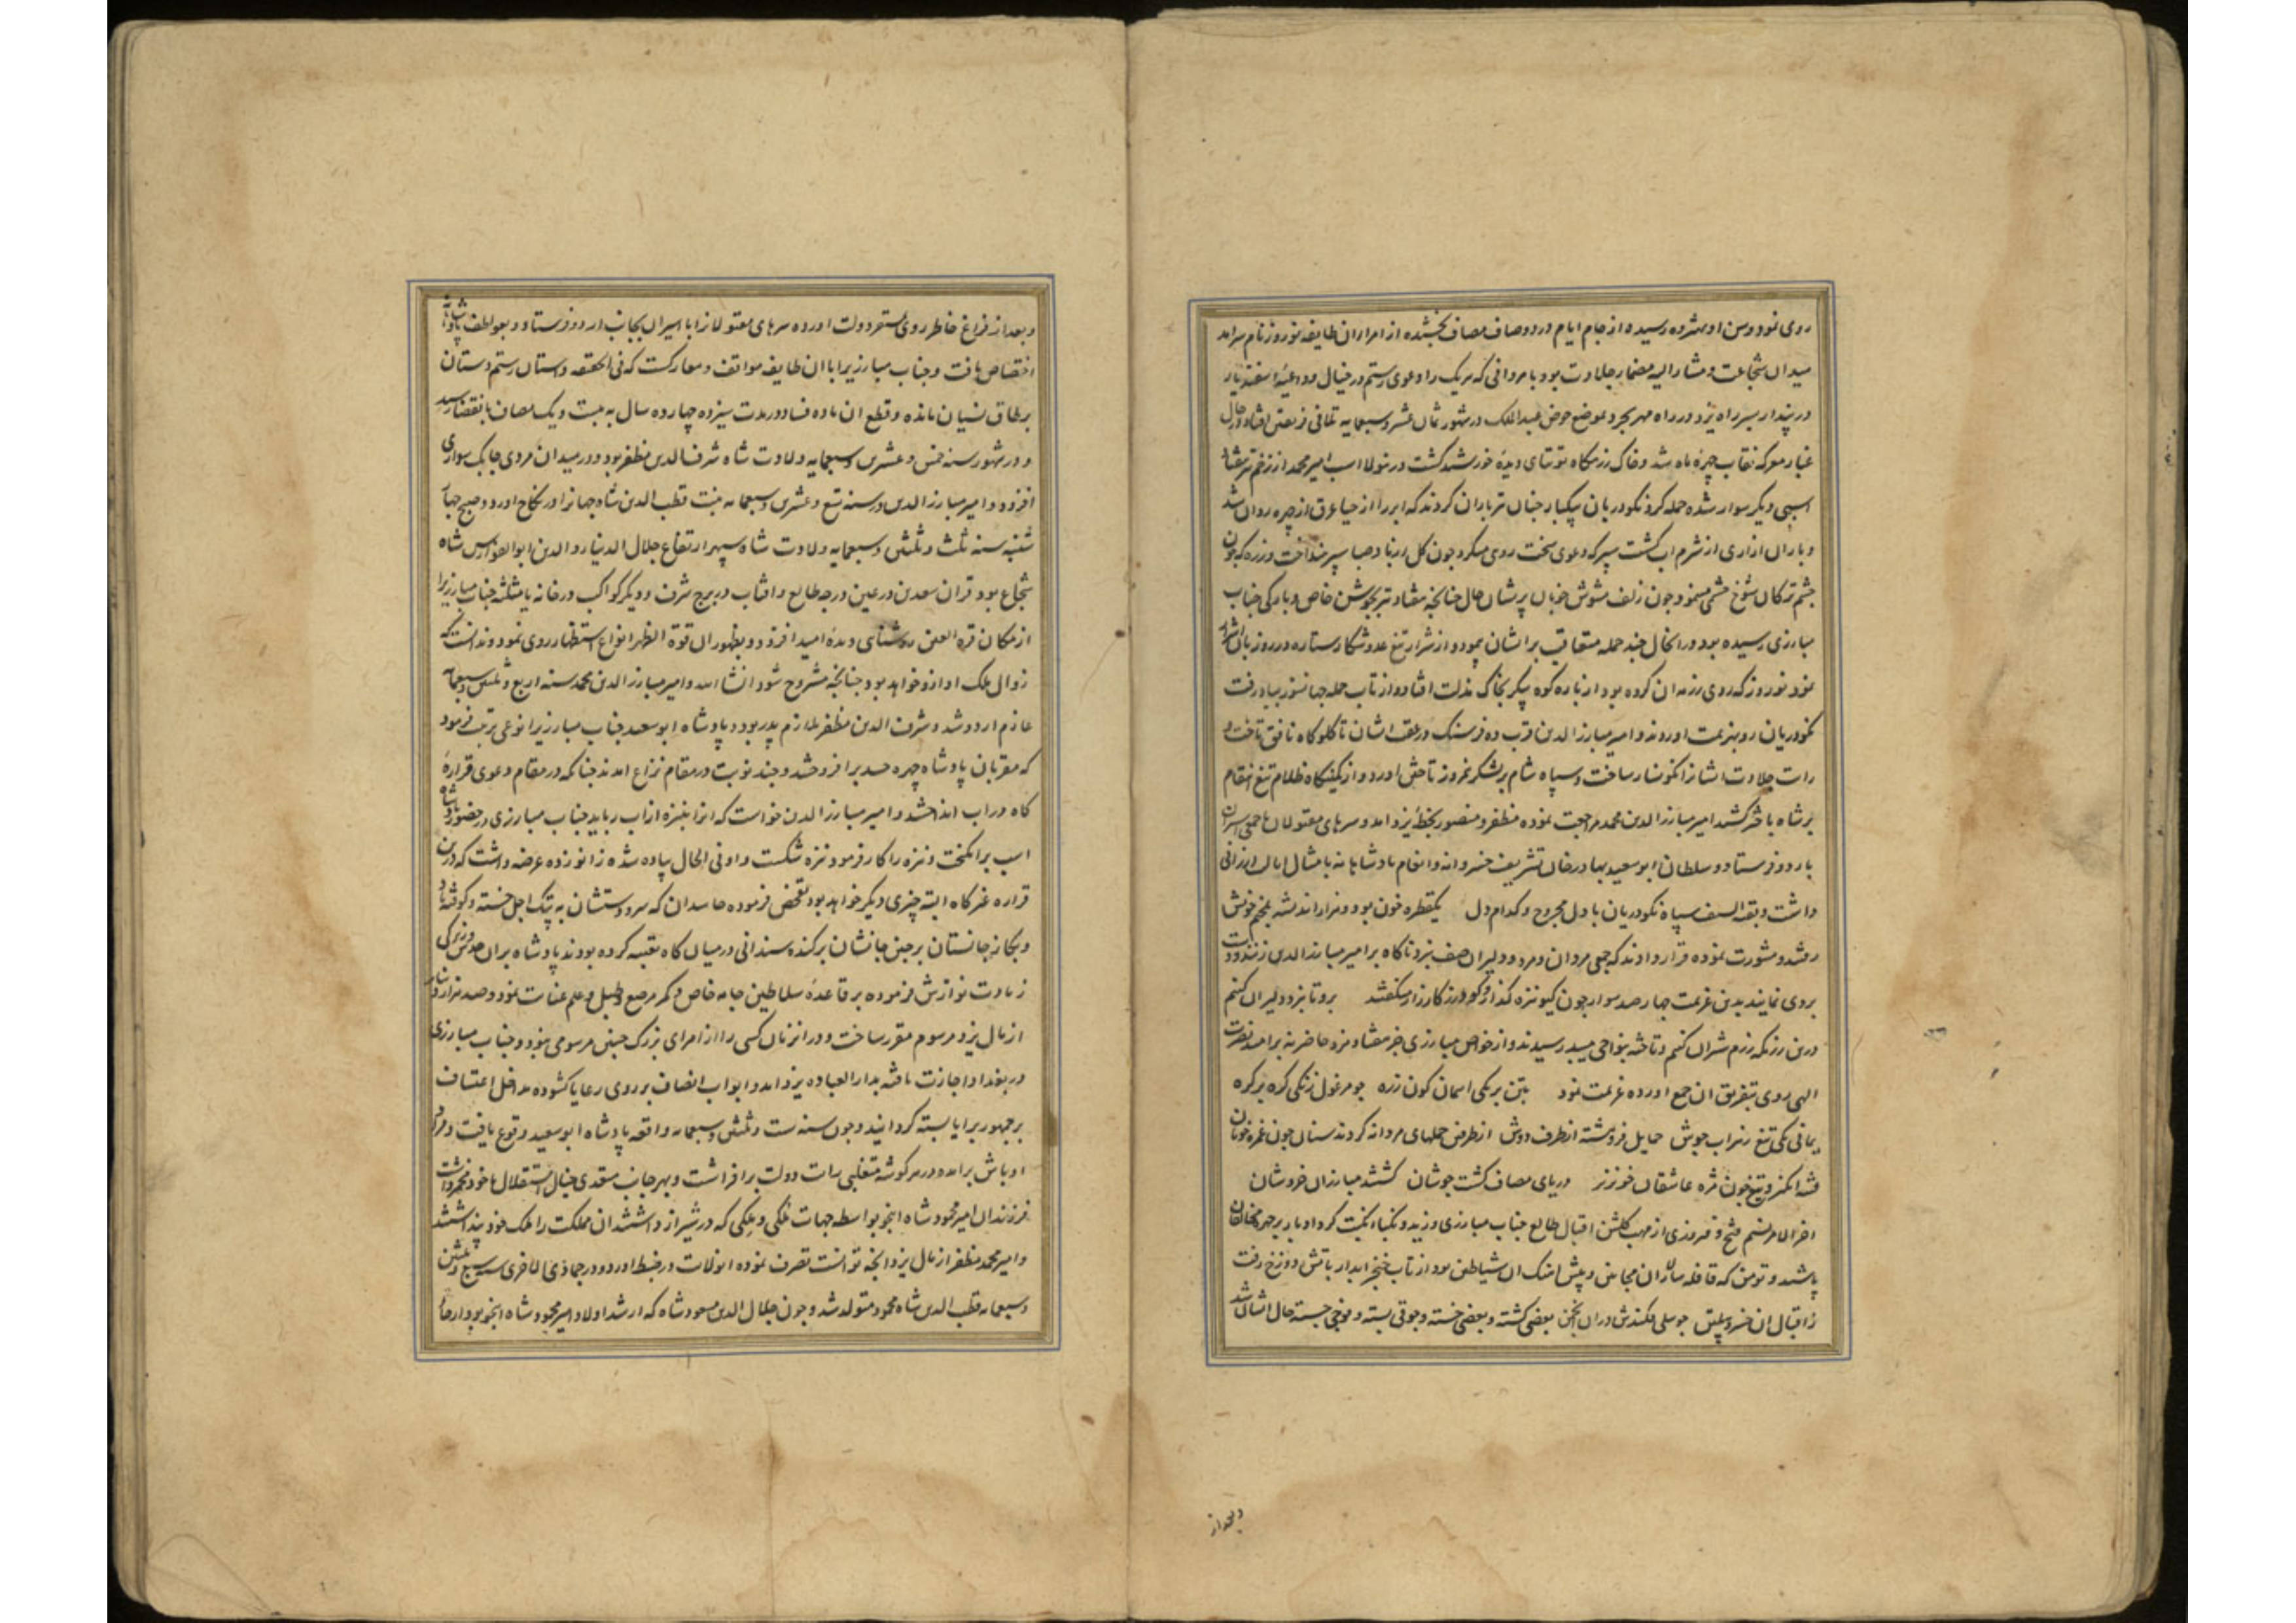 روی نمود و سن او بهژده رسیده از جام ایام درد و صاف مصاف بخشیده از امرا ان طایفه نوروز نام سرامد
میدان شجاعت و مشارالیه مضمار جلادت بود با مردانی که هر یک را دعوی رستم در خیال و داعیه اسفندیار
در پندار بسر راه یزد در راه مهریجرد بموضع حوض عبدالملک در شهور ثمان عشر و سبعمایه تلاقی فریقین افتاد و
غبار معرکه نقاب چهره ماه شد و خاک رزمگاه توتیای دیده خورشید گشت در تولا اسب امیر محمد از زخم تیر بیفتاد
اسبی دیگر سوار شده حمله کرد نکودریان بیکبار چنان تیرباران کردند که ابر را از حیا عرق از چهره روان شد
و باران ازاری از شرم اب گشت سپر که دعوی سخت روی میکرد چون گل از باد صبا سپر بینداخت و زره که چون
چشم ترکان شوخ چشمی مینمود چون زلف مشوش خوبان پریشان حال چنانچه هفتاد تیر بجوشن خاص و بارگی جناب
مبارزی رسیده بود در انحال چند حمله متعاقب بر ایشان نمود و از شرار تیغ عدو شکار ستاره در روز بایشان
نمود نوروز که روی رزم ان گروه بود از باره کوه پیکر بخاک مذلت افتاد و از تاب حمله جهانسوز بباد رفت
نکودریان رو بهزیمت اوردند و امیر مبارزالدین قرب ده فرسنگ در عقب ایشان تا گلوگاه بافق تاخت و
رایت جلادت ایشانرا نگونسار ساخت و سپاه شام بر لشکر نیمروز تاختن اورد و از کمینگاه ظلام تیغ انتقام
بر شاه باختر کشید امیر مبارزالدین محمد مراجعت نموده مظفر و منصور بخطه یزد امد و سرهای مقتولان با جمعی اسیران
باردو فرستاد و سلطان ابو سعید بهادر خان تشریف خسروانه و انعام پادشاهانه با مثال ایالت ارزانی
داشت و بقیه السیف سپاه نکودریان با دل مجروح و کدام دل یکقطره خون بود و هزار اندیشه بمخیم خویش
رفتند و مشورت نموده قرار دادند که جمعی مردان و مرد و دلیران صف نبرد ناگاه بر امیر مبارزالدین زنند و
بروی نمایند بدین عزیمت چهار صد سوار چون گیو نیزه گذار و گودرز کارزار میگفتند برو تا نبرد دلیران کنیم
درین رزمگه رزم شیران کنیم و تاخته بنواحی میبد رسیدند و از خواص مبارزی جز هفتاد مرد حاضر نه بر امید نصرت
الهی روی بتفریق ان جمع اورده عزیمت نمود بتن بر یکی اسمان گون زره چو مرغول زنگی گره بر گره
یمانی یکی تیغ زهراب جوش حمایل فروهشته از طرف دوش از طرفین حملهای مردانه کردند سنان چون غمزه خوبان
فتنه انگیز و تیغ چون مژه عاشقان خونریز دریای مصاف گشت جوشان گشتند مبارزان خروشان
اخر الامر نسیم فتح و فیروزی از مهب گلشن اقبال طالع جناب مبارزی وزید و نکباء نکبت گرد ادبار بر چهره مخالفان
پاشید و تومن که قافله سالار ان مجانین و پیش اهنگ ان شیاطین بود از تاب خنجر ابدار باتش دوزخ رفت
ز اقبال ان خسرو پیلتن چو سلی فکندش دران انجمن بعضی کشته و بعضی خسته و جوقی بسته و فوجی جسته حال ایشان شد
و بعد از
و بعد از فراغ خاطر روی بمستقر دولت اورده سرهای مقتولانرا با اسیران بجانب اردو فرستاد و بعواطف پادشاهانه
اختصاص یافت و جناب مبارزیرا با ان طایفه مواقف و معارکست که فی الحقیقه داستان رستم دستان
بر طاق نسیان مانده و قطع ان ماده فساد در مدت سیزده چهارده سال به بیست و یک مصاف بانقضا رسید
و در شهور سنه خمس و عشرین و سبعمایه ولادت شاه شرف الدین مظفر بود و در میدان مردی چابک سواری
افزود و امیر مبارزالدین در سنه تسع و عشرین و سبعمایه بنت قطب الدین شاه جهانرا در نکاح اورد و صبح چهار
شنبه سنه ثلث و ثلثین و سبعمایه ولادت شاه سپهر ارتفاع جلال الدنیا و الدین ابوالفوارس شاه
شجاع بود قران سعدین در عین درجه طالع و افتاب در برج شرف و دیگر کواکب در خانه یا مثلثه جناب مبارزیرا
ازمکان قره العین روشنای دیده امید افزود و بظهور ان قوة الظهر انواع استظهار روی نمود و ندانست که
زوال ملک او ازو خواهد بود چنانچه مشروح شود انشا الله و امیر مبارزالدین محمد سنه اربع و ثلثین و سبعمایه
عازم اردو شد و شرف الدین مظفر ملازم پدر بود و پادشاه ابو سعید جناب مبارزیرا نوعی تربیت فرمود
که مقربان پادشاه چهره حسد برافروختند و چند نوبت در مقام نزاع امدند چنانکه در مقام دعوی قراره
کاه در اب انداختند و امیر مبارزالدین خواست که انرا بنیزه از اب رباید جناب مبارزی در حضور پادشاه
اسب برانگیخت و نیزه را کار فرمود نیزه شکست و او فی الحال پیاده شده زانو زده عرضه داشت که درین
قراره غیر کاه البته چیزی دیگر خواهد بود تفحص فرموده حاسدان که سر و دستشان به پتک اجل خسته و کوفته باد
و پیکان جانستان بر جبین جانشان بر کنده سندانی در میان کاه تعبیه کرده بودند پادشاه بران حدس و زیرکی
زیادت نوازش فرموده بر قاعده سلاطین جامه خاص و کمر مرصع و طبل و علم عنایت نمود و صد هزار دینار
از مال یزد مرسوم مقرر ساخت و در انزمان کسی را از امرای بزرگ چنین مرسومی نبود و جناب مبارزی
در بغداد اجازت یافته بدارالعباده یزد امد و ابواب انصاف بر روی رعایا گشوده مداخل اعتساف
بر جمهور برایا بسته گردانید و چون سنه ست و ثلثین و سبعمایه واقعه پادشاه ابو سعید وقوع یافت و
اوباش برامده در هر گوشه متغلبی رایت دولت برافراشت و بهر جانب متعدی خیال استقلال با خود
فرزندان امیر محمود شاه اینجو بواسطه جهات ملکی و ملکی که در شیراز داشتند ان مملکت را ملک خود پنداشتند
و امیر محمد مظفر از مال یزد انچه توانست تصرف نموده انولایت در ضبط اورد و در جمادی الاخری سنه سبع و ثلثین
و سبعمایه قطب الدین شاه محمود متولد شد و چون جلال الدین مسعود شاه که ارشد اولاد امیر محمود شاه اینجو بود